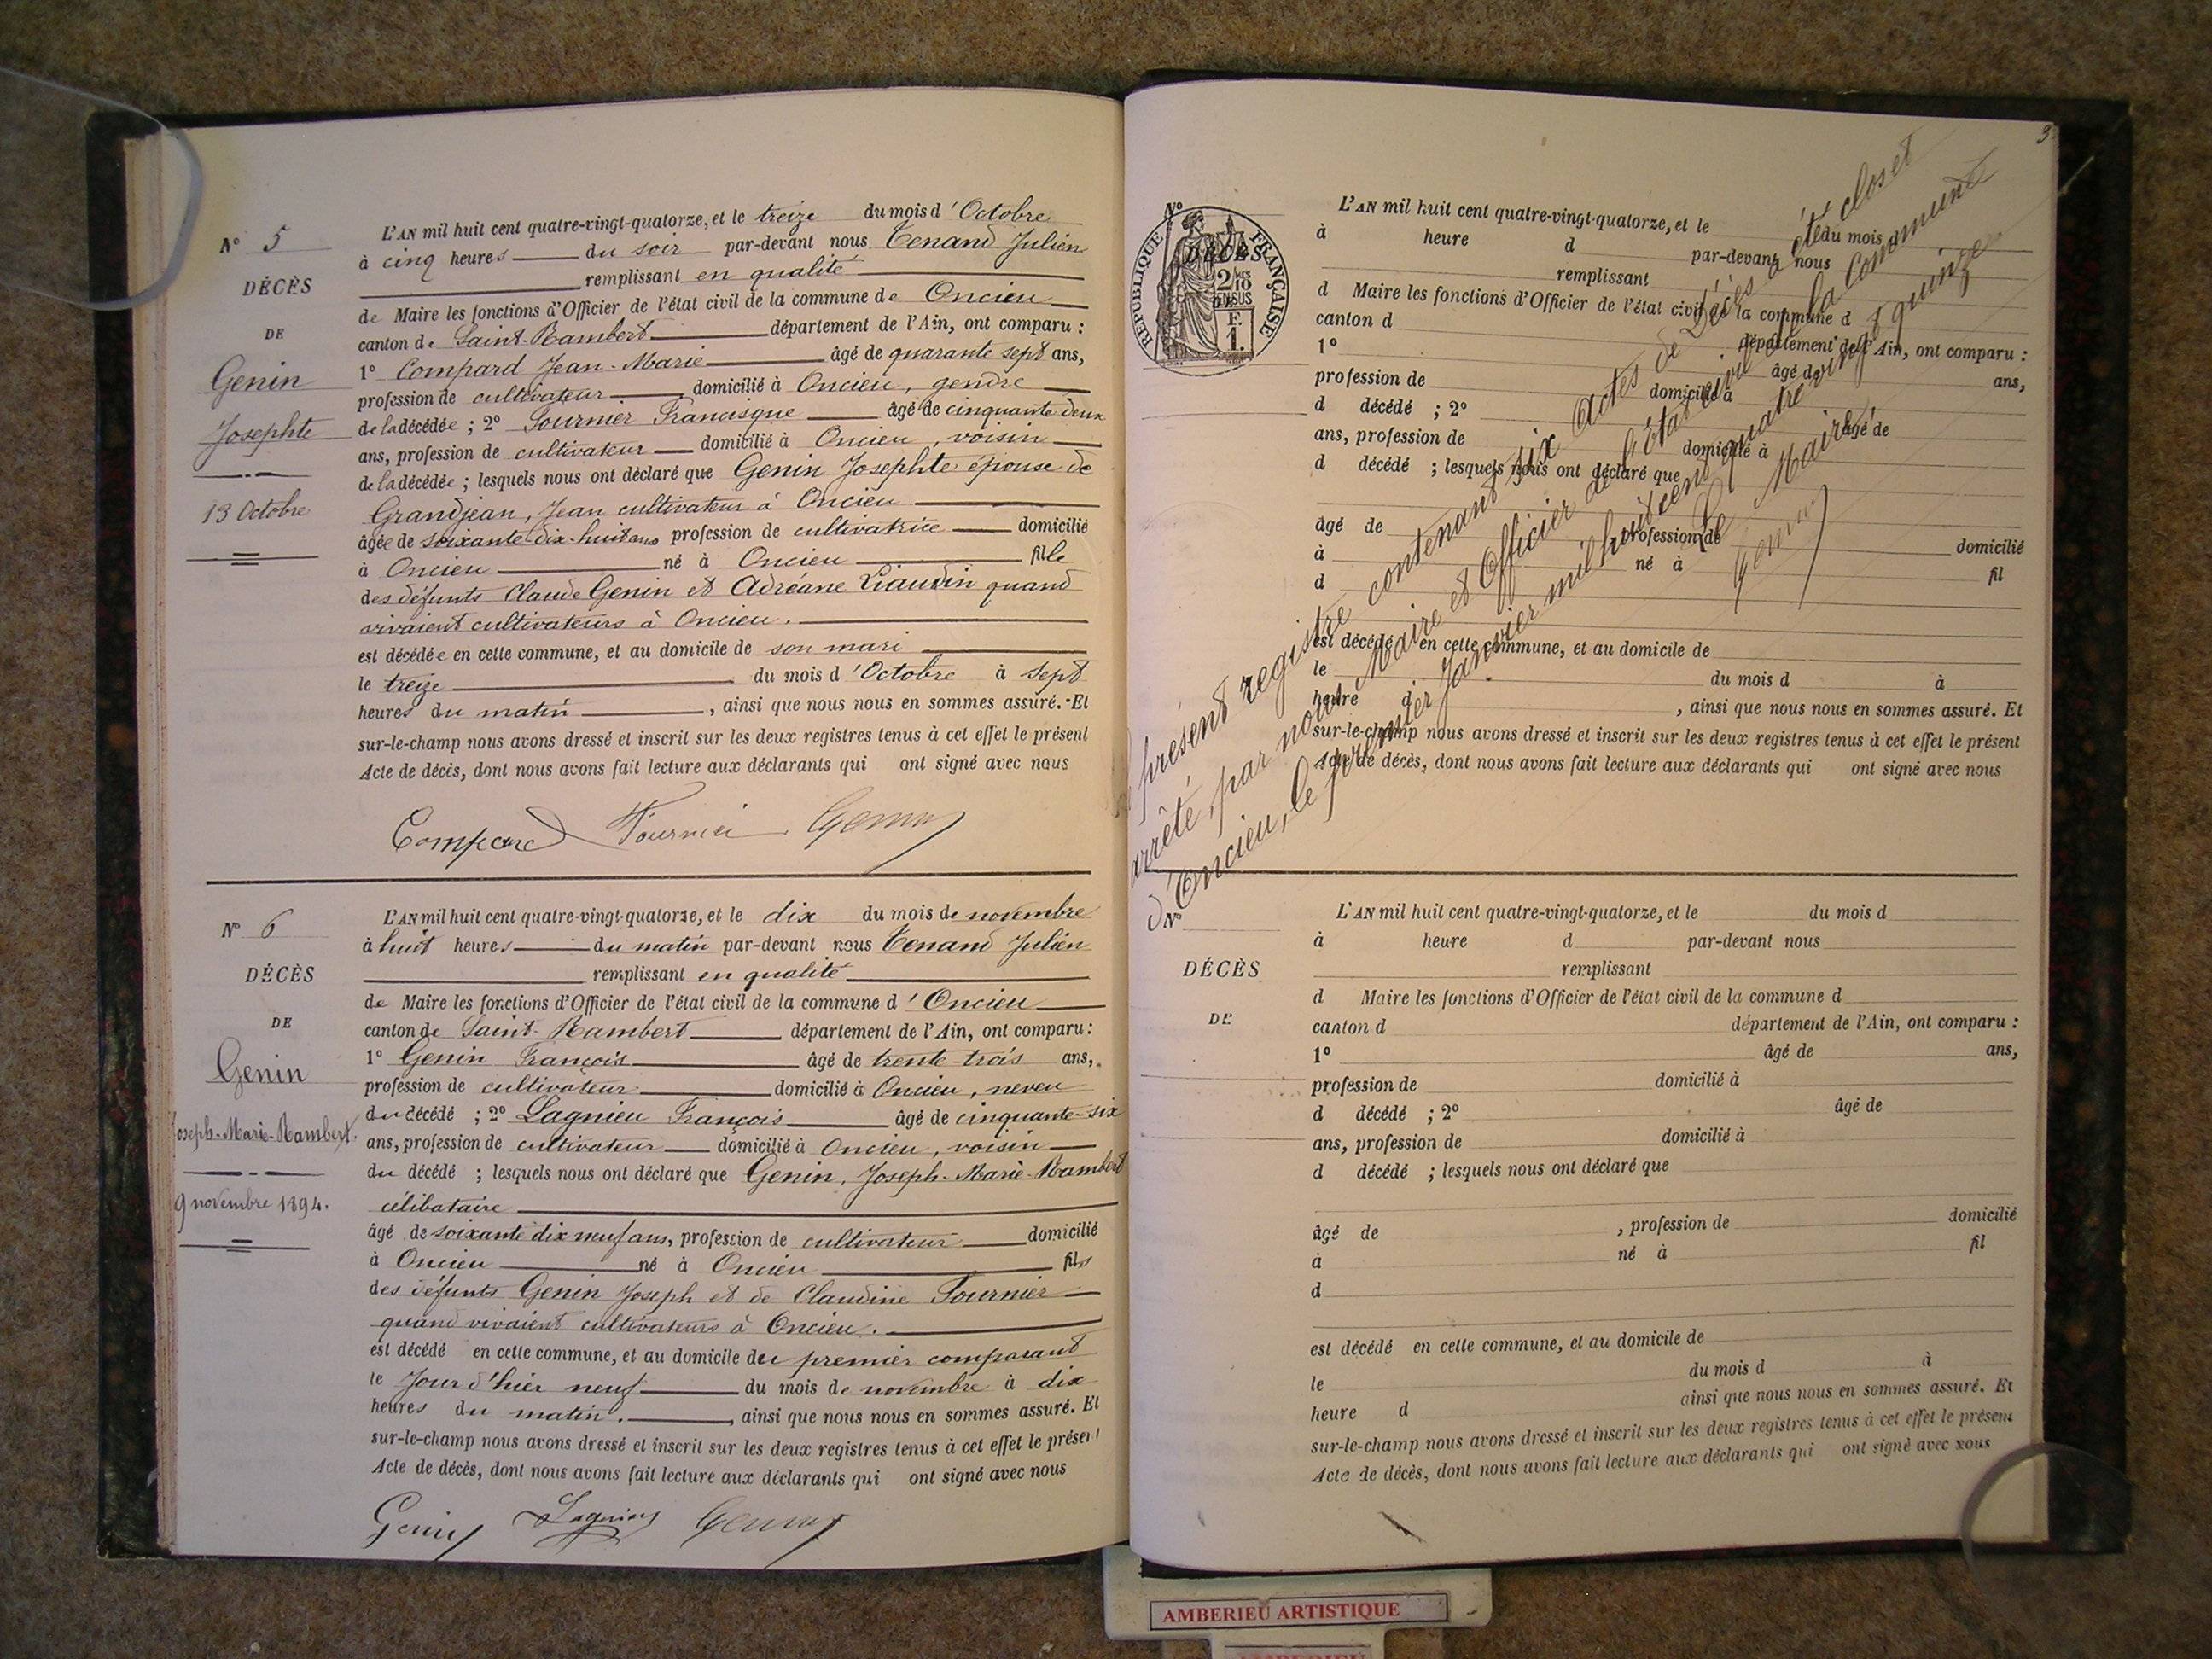 N° 5
DÉCÈS
DE
Genin
Josephte
13 Octobre
L'AN mil huit cent quatre-vingt-quatorze, et le treize du mois d'Octobre
à cinq heures du soir par-devant nous Tenand Julien
remplissant en qualité
de Maire les fonctions d'Officier de l'état civil de la commune de Oncieu
canton de Saint-Rambert département de l'Ain, ont comparu :
1° Compard Jean-Marie âgé de quarante sept ans,
profession de cultivateur domicilié à Oncieu, gendre
de la décédée ; 2° Fournier Francisque âgé de cinquante deux
ans, profession de cultivateur domicilié à Oncieu, voisin
de la décédée ; lesquels nous ont déclaré que Genin Josephte épouse de
Grandjean, Jean cultivateur à Oncieu
âgée de soixante-dix-huit ans profession de cultivatrice domicilié
à Oncieu né à Oncieu fille
des défunts Claude Genin et Adréane Liaudin quand
vivaient cultivateurs à Oncieu.
est décédée en cette commune, et au domicile de son mari
le treize du mois d'Octobre à sept
heures du matin, ainsi que nous nous en sommes assuré. Et
sur-le-champ nous avons dressé et inscrit sur les deux registres tenus à cet effet le présent
Acte de décès, dont nous avons fait lecture aux déclarants qui ont signé avec nous
Compard Fournier
N° 6
DÉCÈS
DE
Genin
Joseph-Marie-Rambert.
9 novembre 1894.
L'AN mil huit cent quatre-vingt-quatorze, et le dix du mois de novembre
à huit heures du matin par-devant nous Tenand Julien
remplissant en qualité
de Maire les fonctions d'Officier de l'état civil de la commune d'Oncieu
canton de Saint-Rambert département de l'Ain, ont comparu :
1° Genin François âgé de trente-trois ans,
profession de cultivateur domicilié à Oncieu, neveu
du décédé ; 2° Lagnieu François âgé de cinquante-six
ans, profession de cultivateur domicilié à Oncieu, voisin
du décédé ; lesquels nous ont déclaré que Genin, Joseph-Marie-Rambert
célibataire
âgé de soixante dix neuf ans, profession de cultivateur domicilié
à Oncieu né à Oncieu fils
des défunts Genin Joseph et de Claudine Fournier
quand vivaient cultivateurs à Oncieu.
est décédé en cette commune, et au domicile du premier comparant
le Jour d'hier neuf du mois de novembre à dix
heures du matin. ainsi que nous nous en sommes assuré. Et
sur-le-champ nous avons dressé et inscrit sur les deux registres tenus à cet effet le présent
Acte de décès, dont nous avons fait lecture aux déclarants qui ont signé avec nous
Genin Lagnieu
3
N°
DÉCÈS
RÉPUBLIQUE FRANÇAISE
2/10 EN SUS
F.
1.
L'AN mil huit cent quatre-vingt-quatorze, et le du mois d
à heure d par-devant nous
remplissant
d Maire les fonctions d'Officier de l'état civil de la commune d
canton d département de l'Ain, ont comparu :
1° âgé de ans,
profession de domicilié à
d décédé ; 2° âgé de
ans, profession de domicilié à
d décédé ; lesquels nous ont déclaré que
âgé de profession de domicilié
à né à fil
d
est décédé en cette commune, et au domicile de
le du mois d à
heure d , ainsi que nous nous en sommes assuré. Et
sur-le-champ nous avons dressé et inscrit sur les deux registres tenus à cet effet le présent
Acte de décès, dont nous avons fait lecture aux déclarants qui ont signé avec nous
présent registre contenant six Actes de Décès a été clos et
arrêté, par nous Maire et Officier de l'état civil de la Commune
d'Oncieu, le premier Janvier mil huit cent quatre vingt quinze
Le Maire
N°
DÉCÈS
DE
L'AN mil huit cent quatre-vingt-quatorze, et le du mois d
à heure d par-devant nous
remplissant
d Maire les fonctions d'Officier de l'état civil de la commune d
canton d département de l'Ain, ont comparu :
1° âgé de ans,
profession de domicilié à
d décédé ; 2° âgé de
ans, profession de domicilié à
d décédé ; lesquels nous ont déclaré que
âgé de , profession de domicilié
à né à fil
d
est décédé en cette commune, et au domicile de
le du mois d à
heure d ainsi que nous nous en sommes assuré. Et
sur-le-champ nous avons dressé et inscrit sur les deux registres tenus à cet effet le présent
Acte de décès, dont nous avons fait lecture aux déclarants qui ont signé avec nous
AMBERIEU ARTISTIQUE
AMBERIEU